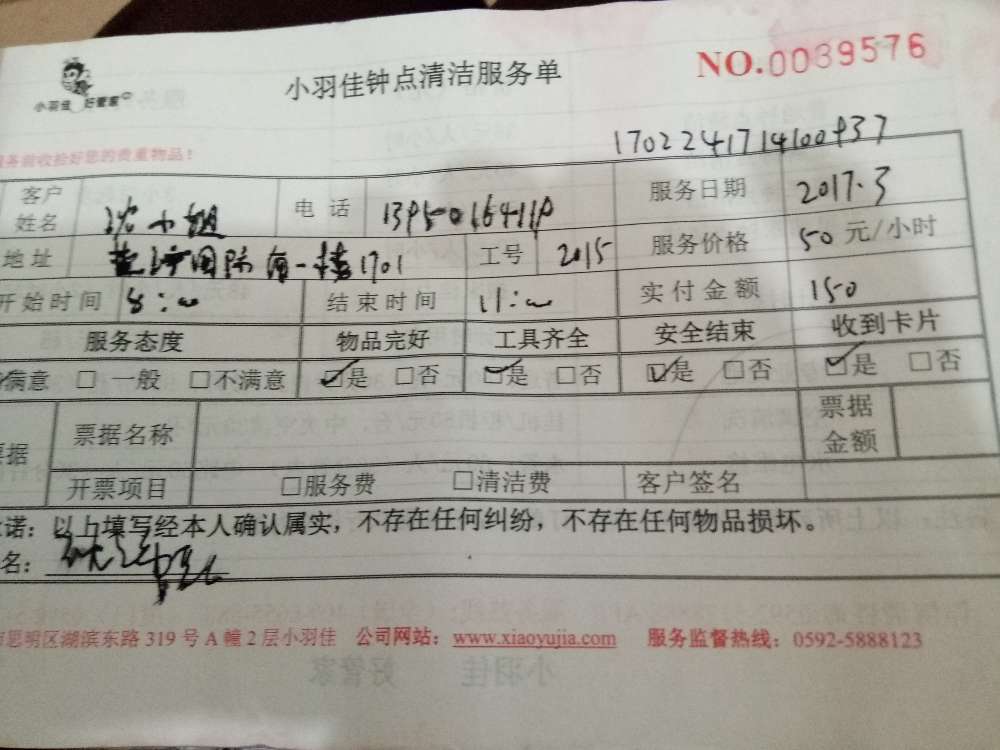 小羽佳 好管家
小羽佳钟点清洁服务单
NO.0039576
服务前收拾好您的贵重物品！
客户姓名 沈小姐 电话 服务日期 2017.3
地址 国际 1701 工号 2015 服务价格 50 元/小时
开始时间 8:00 结束时间 11:00 实付金额 150
服务态度 物品完好 工具齐全 安全结束 收到卡片
满意 □ 一般 □不满意 ☑是 □否 ☑是 □否 ☑是 □否 ☑是 □否
票据名称 票据金额
开票项目 □服务费 □清洁费 客户签名
诺：以上填写经本人确认属实，不存在任何纠纷，不存在任何物品损坏。
名：
市思明区湖滨东路 319 号 A 幢 2 层小羽佳 公司网站：www.xiaoyujia.com 服务监督热线：0592-5888123